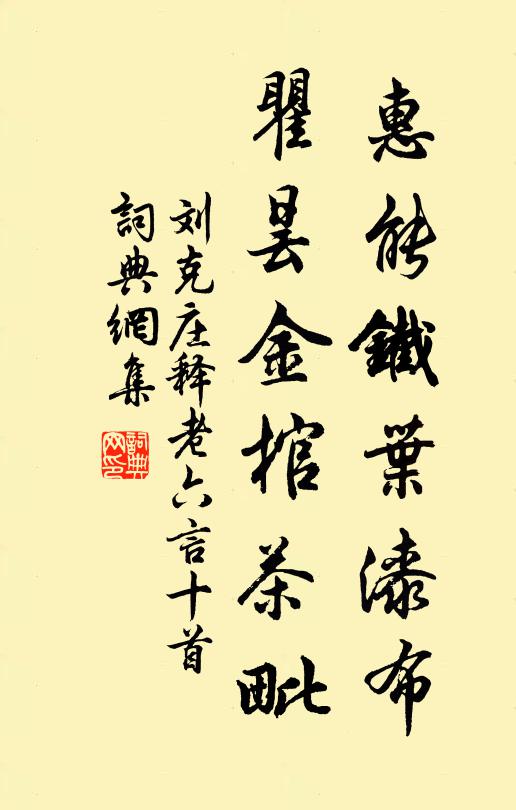 惠能鐵葉漆布
瞿昙金棺茶毗
刘克庄释老六言十首
詞典網集
詞典网印